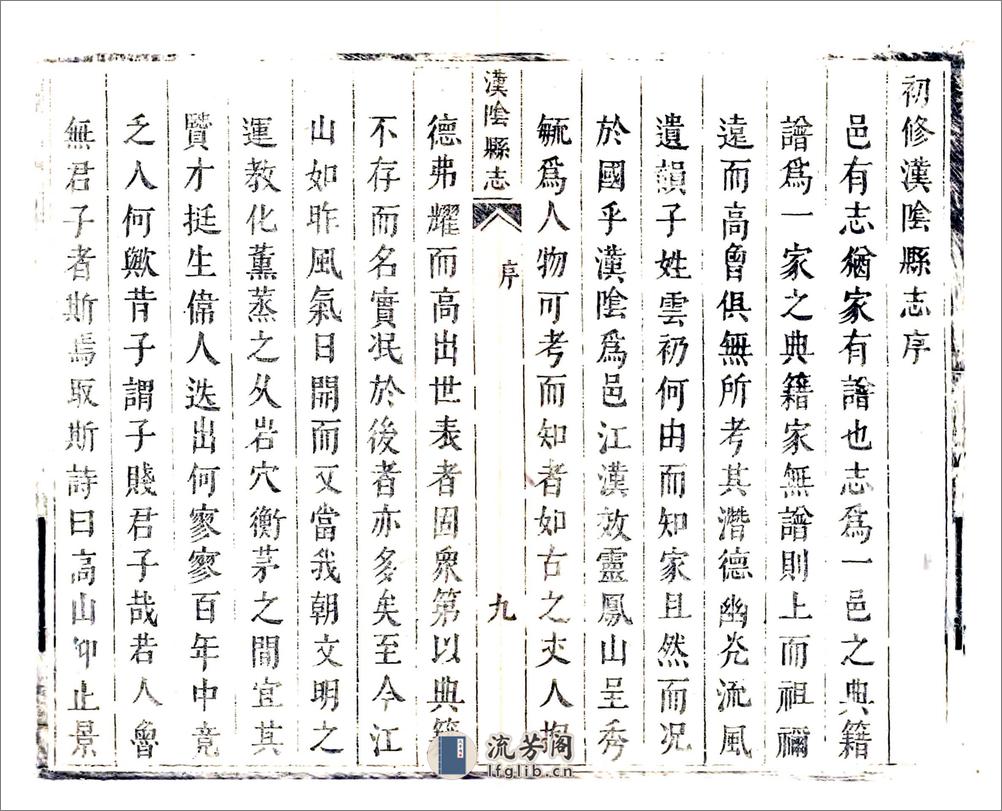 初修漢陰縣志序
邑有志猶家有譜也志爲一邑之典籍
譜爲一家之典籍家無譜則上而祖禰
遠而高曾俱無所考其潛德幽光流風
遺韻子姓雲礽何由而知家且然而况
於國乎漢陰爲邑江漢效靈鳳山呈秀
毓爲人物可考而知者如古之丈人抱
漢陰縣志
序
九
德弗耀而高出世表者固衆第以典籍
不存而名實泯於後者亦多矣至今江
山如昨風氣日開而又當我朝文明之
運教化薰蒸之久岩穴衡茅之間宜其
賢才挺生偉人迭出何寥寥百年中竟
乏人何歟昔子謂子賤君子哉若人魯
無君子者斯焉取斯詩曰高山仰止景
流芳閣
lfglib.cn